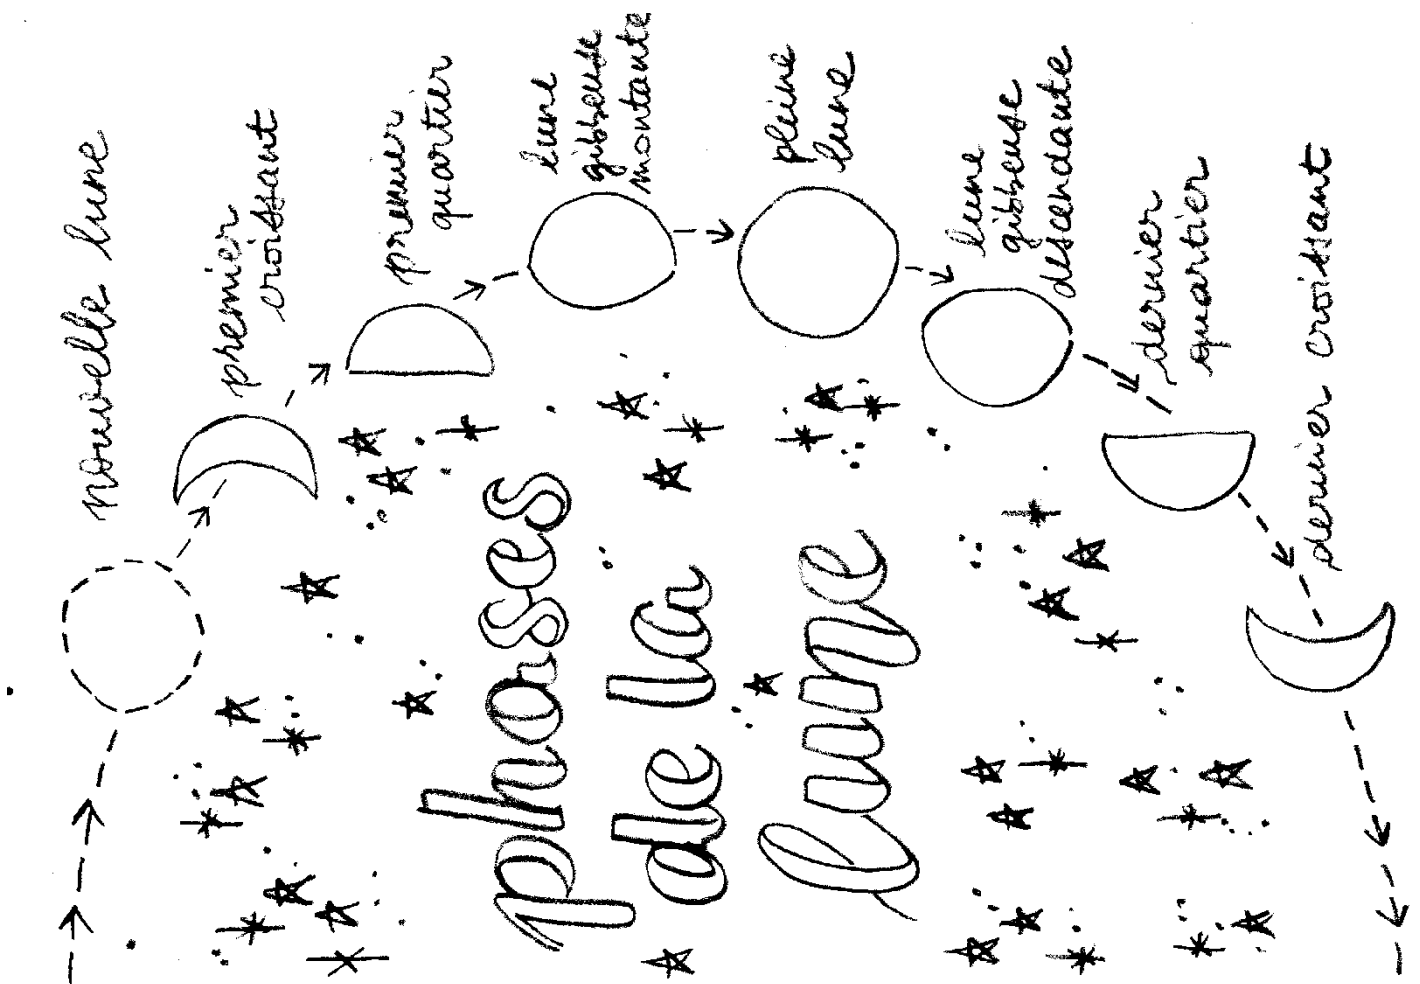 nouvelle lune
premier
croissant
premier
quartier
lune
gibbeuse
montante
pleine
lune
lune
gibbeuse
descendante
dernier
quartier
dernier croissant
phases
de la
lune